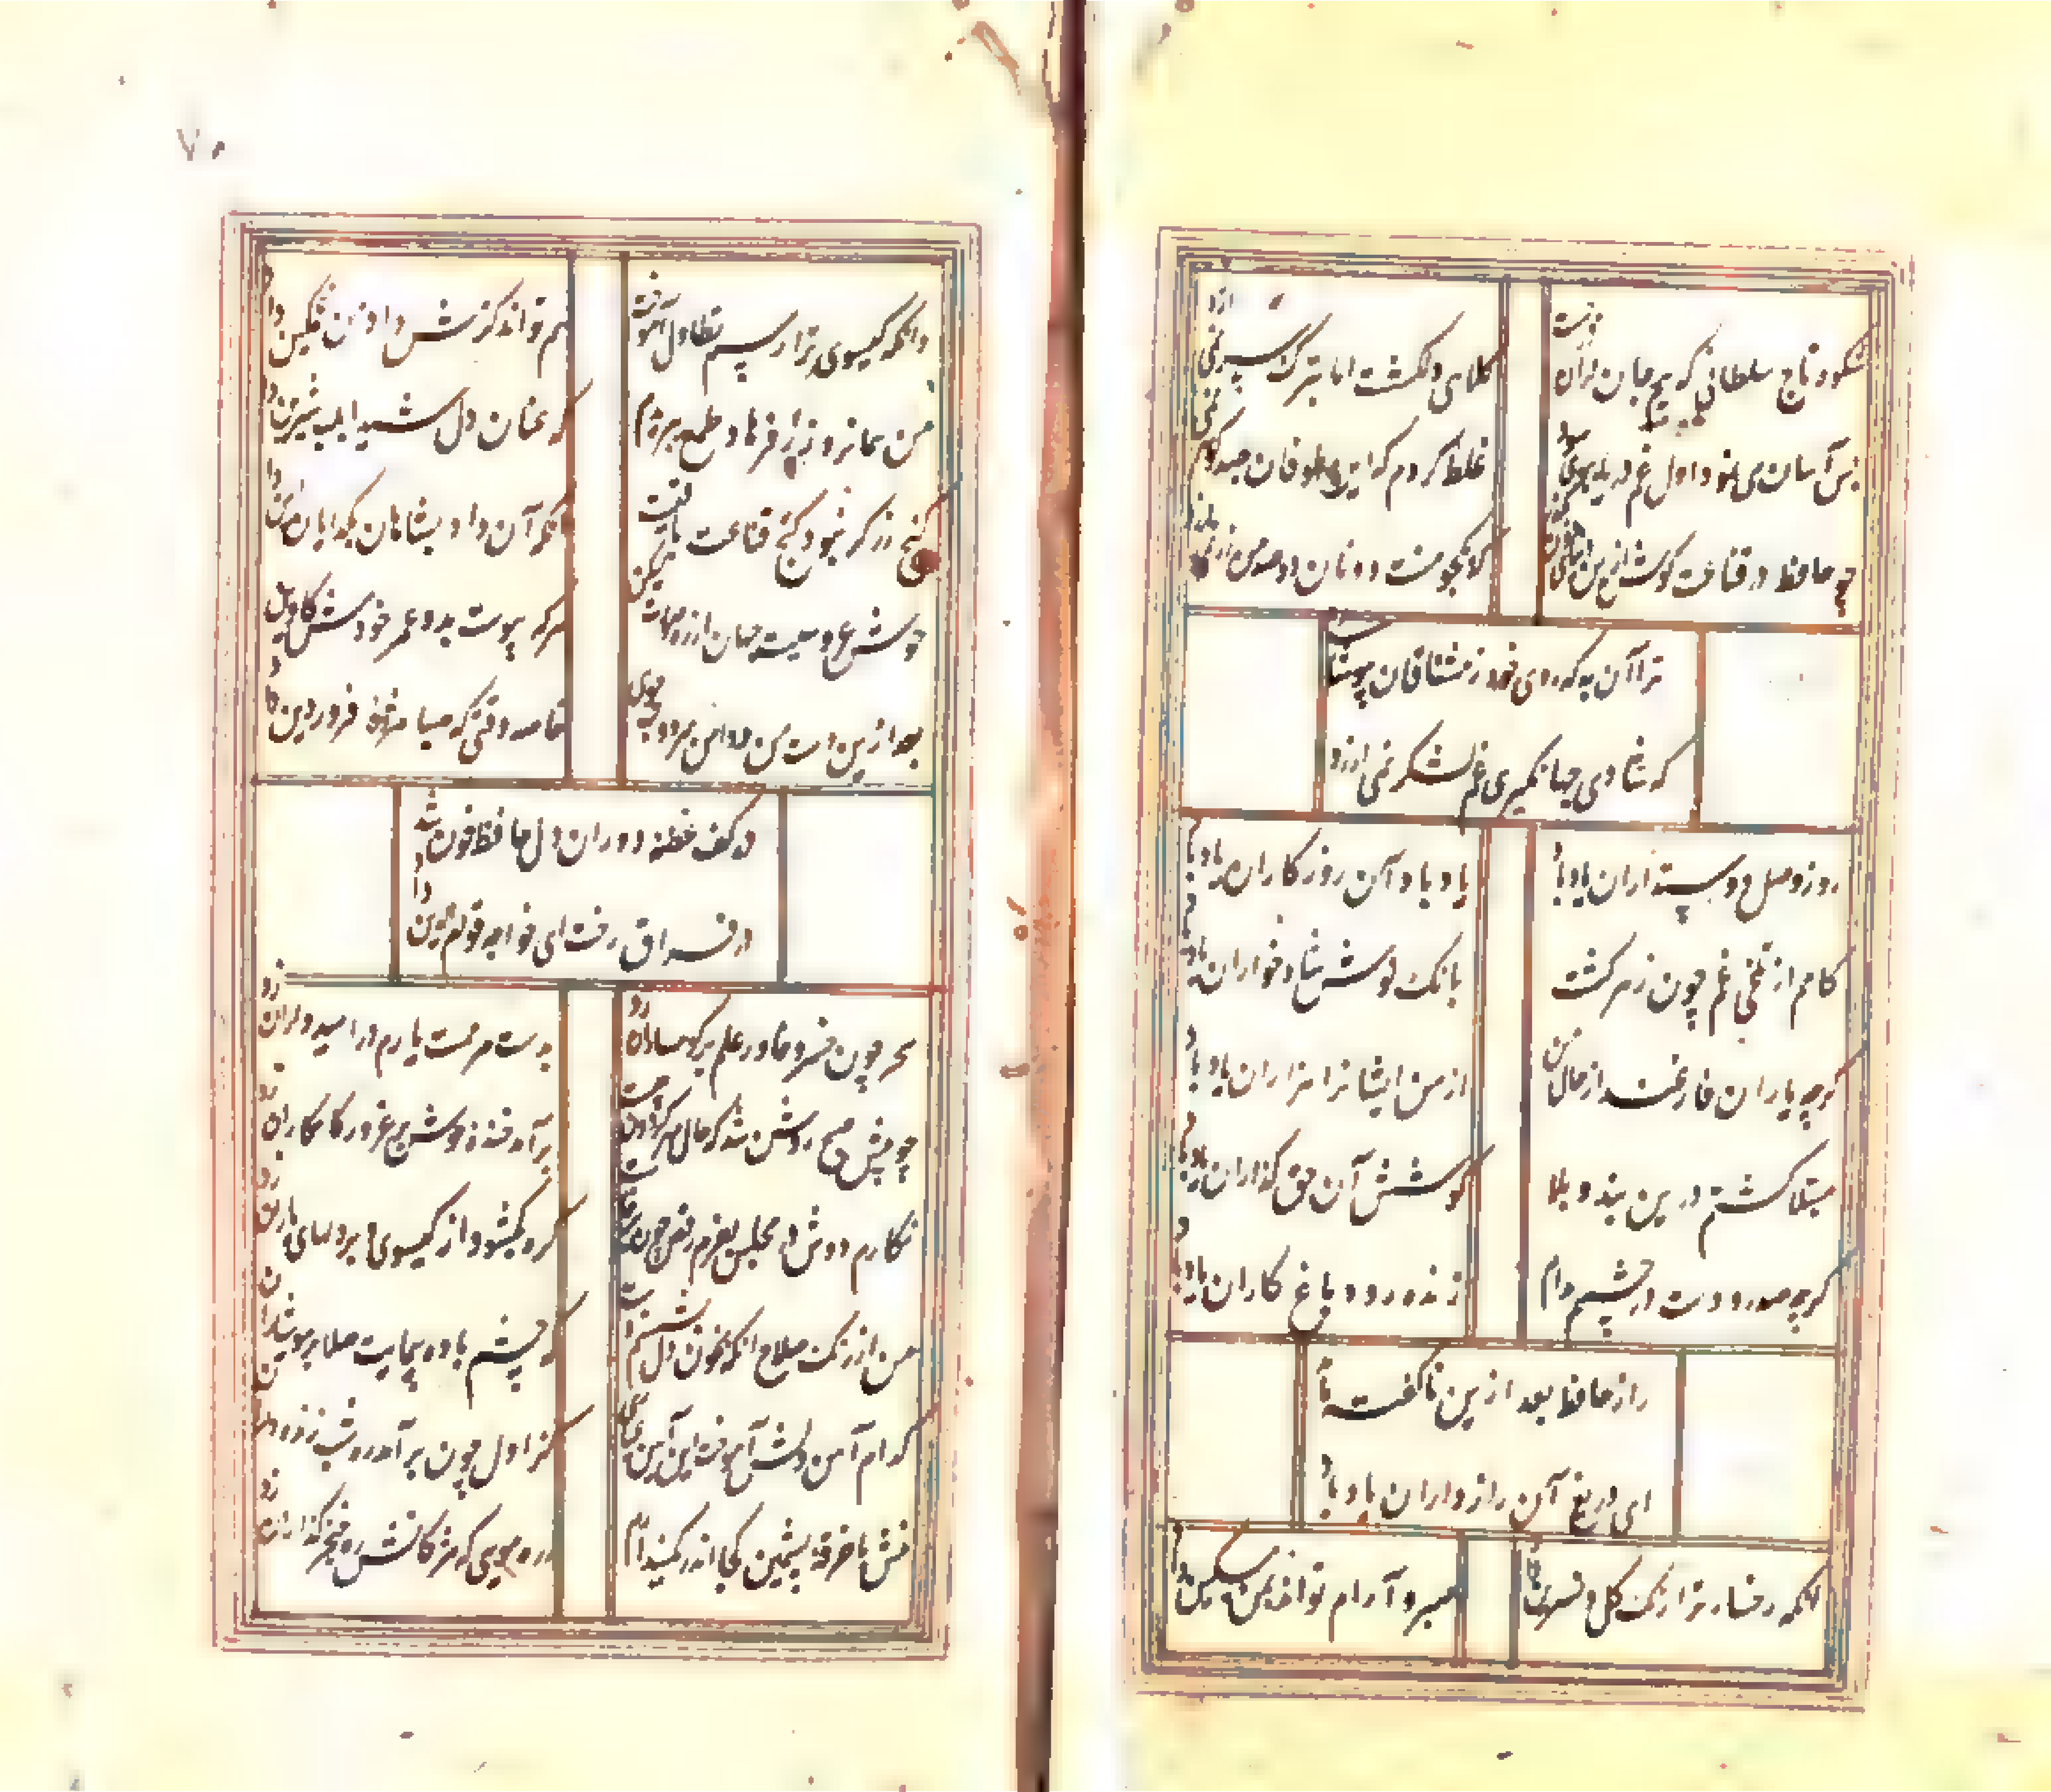 شکوه تاج سلطانی که بیم جان درآن درجست
کلاهی دلکشست اما بترک سر نمی ارزد
بس آسان می نمود اول غم دریا ببوی سود
غلط کردم که این طوفان بصد گوهر نمی ارزد
چو حافظ در قناعت کوش و از دنیای دون بگذر
که یکجو منت دونان دو صد من زر نمی ارزد
ترا آن به که روی خود ز مشتاقان بپوشانی
که شادی جهانگیری غم لشکر نمی ارزد
روز وصل دوستداران یاد باد
یاد باد آن روزگاران یاد باد
کامم از تلخی غم چون زهر گشت
بانک نوش شادخواران یاد باد
گرچه یاران فارغند از حال من
از من ایشانرا هزاران یاد باد
مبتلا گشتم درین بند و بلا
کوشش آن حق گذاران یاد باد
گرچه صد رودست در چشمم دام
زنده رود و باغ کاران یاد باد
راز حافظ بعد ازین ناگفته ماند
ای دریغ آن رازداران یاد باد
آنکه رخسار ترا رنگ گل و نسرین داد
صبر و آرام تواند بمن مسکین داد
۷۰
وانکه گیسوی ترا رسم تطاول آموخت
هم تواند کرمش داد من غمگین داد
من همانروز ز فرهاد طمع ببریدم
که عنان دل شیدا بلب شیرین داد
گنج زر گر نبود کنج قناعت باقیست
آنکه آن داد بشاهان بگدایان این داد
خوش عروسیست جهان از ره صورت لیکن
هرکه پیوست بدو عمر خودش کاوین داد
بعد ازین دست من و دامن سرو و لب جوی
خاصه وقتی که صبا مژده فروردین داد
در کف غصه دوران دل حافظ خون شد
در فراق رخت ای خواجه قوام الدین داد
سحر چون خسرو خاور علم بر کوهساران زد
بدست مرحمت یارم در امیدواران زد
چو پیش صبح روشن شد که حال مهر گردون چیست
برآمد خنده خوش بر غرور کامکاران زد
نگارم دوش در مجلس بعزم رقص چون برخاست
گره بگشود از گیسو و بر دلهای یاران زد
من از رنگ صلاح آنگه بخون دل بشستم دست
که چشم باده پیمایت صلا بر هوشیاران زد
کدام آهن دلش آموخت این آیین عیاری
کز اول چون برآمد ره شب زنده داران زد
منش با خرقه پشمین کجا اندر کمند آرم
زره مویی که مژگانش ره خنجر گذاران زد